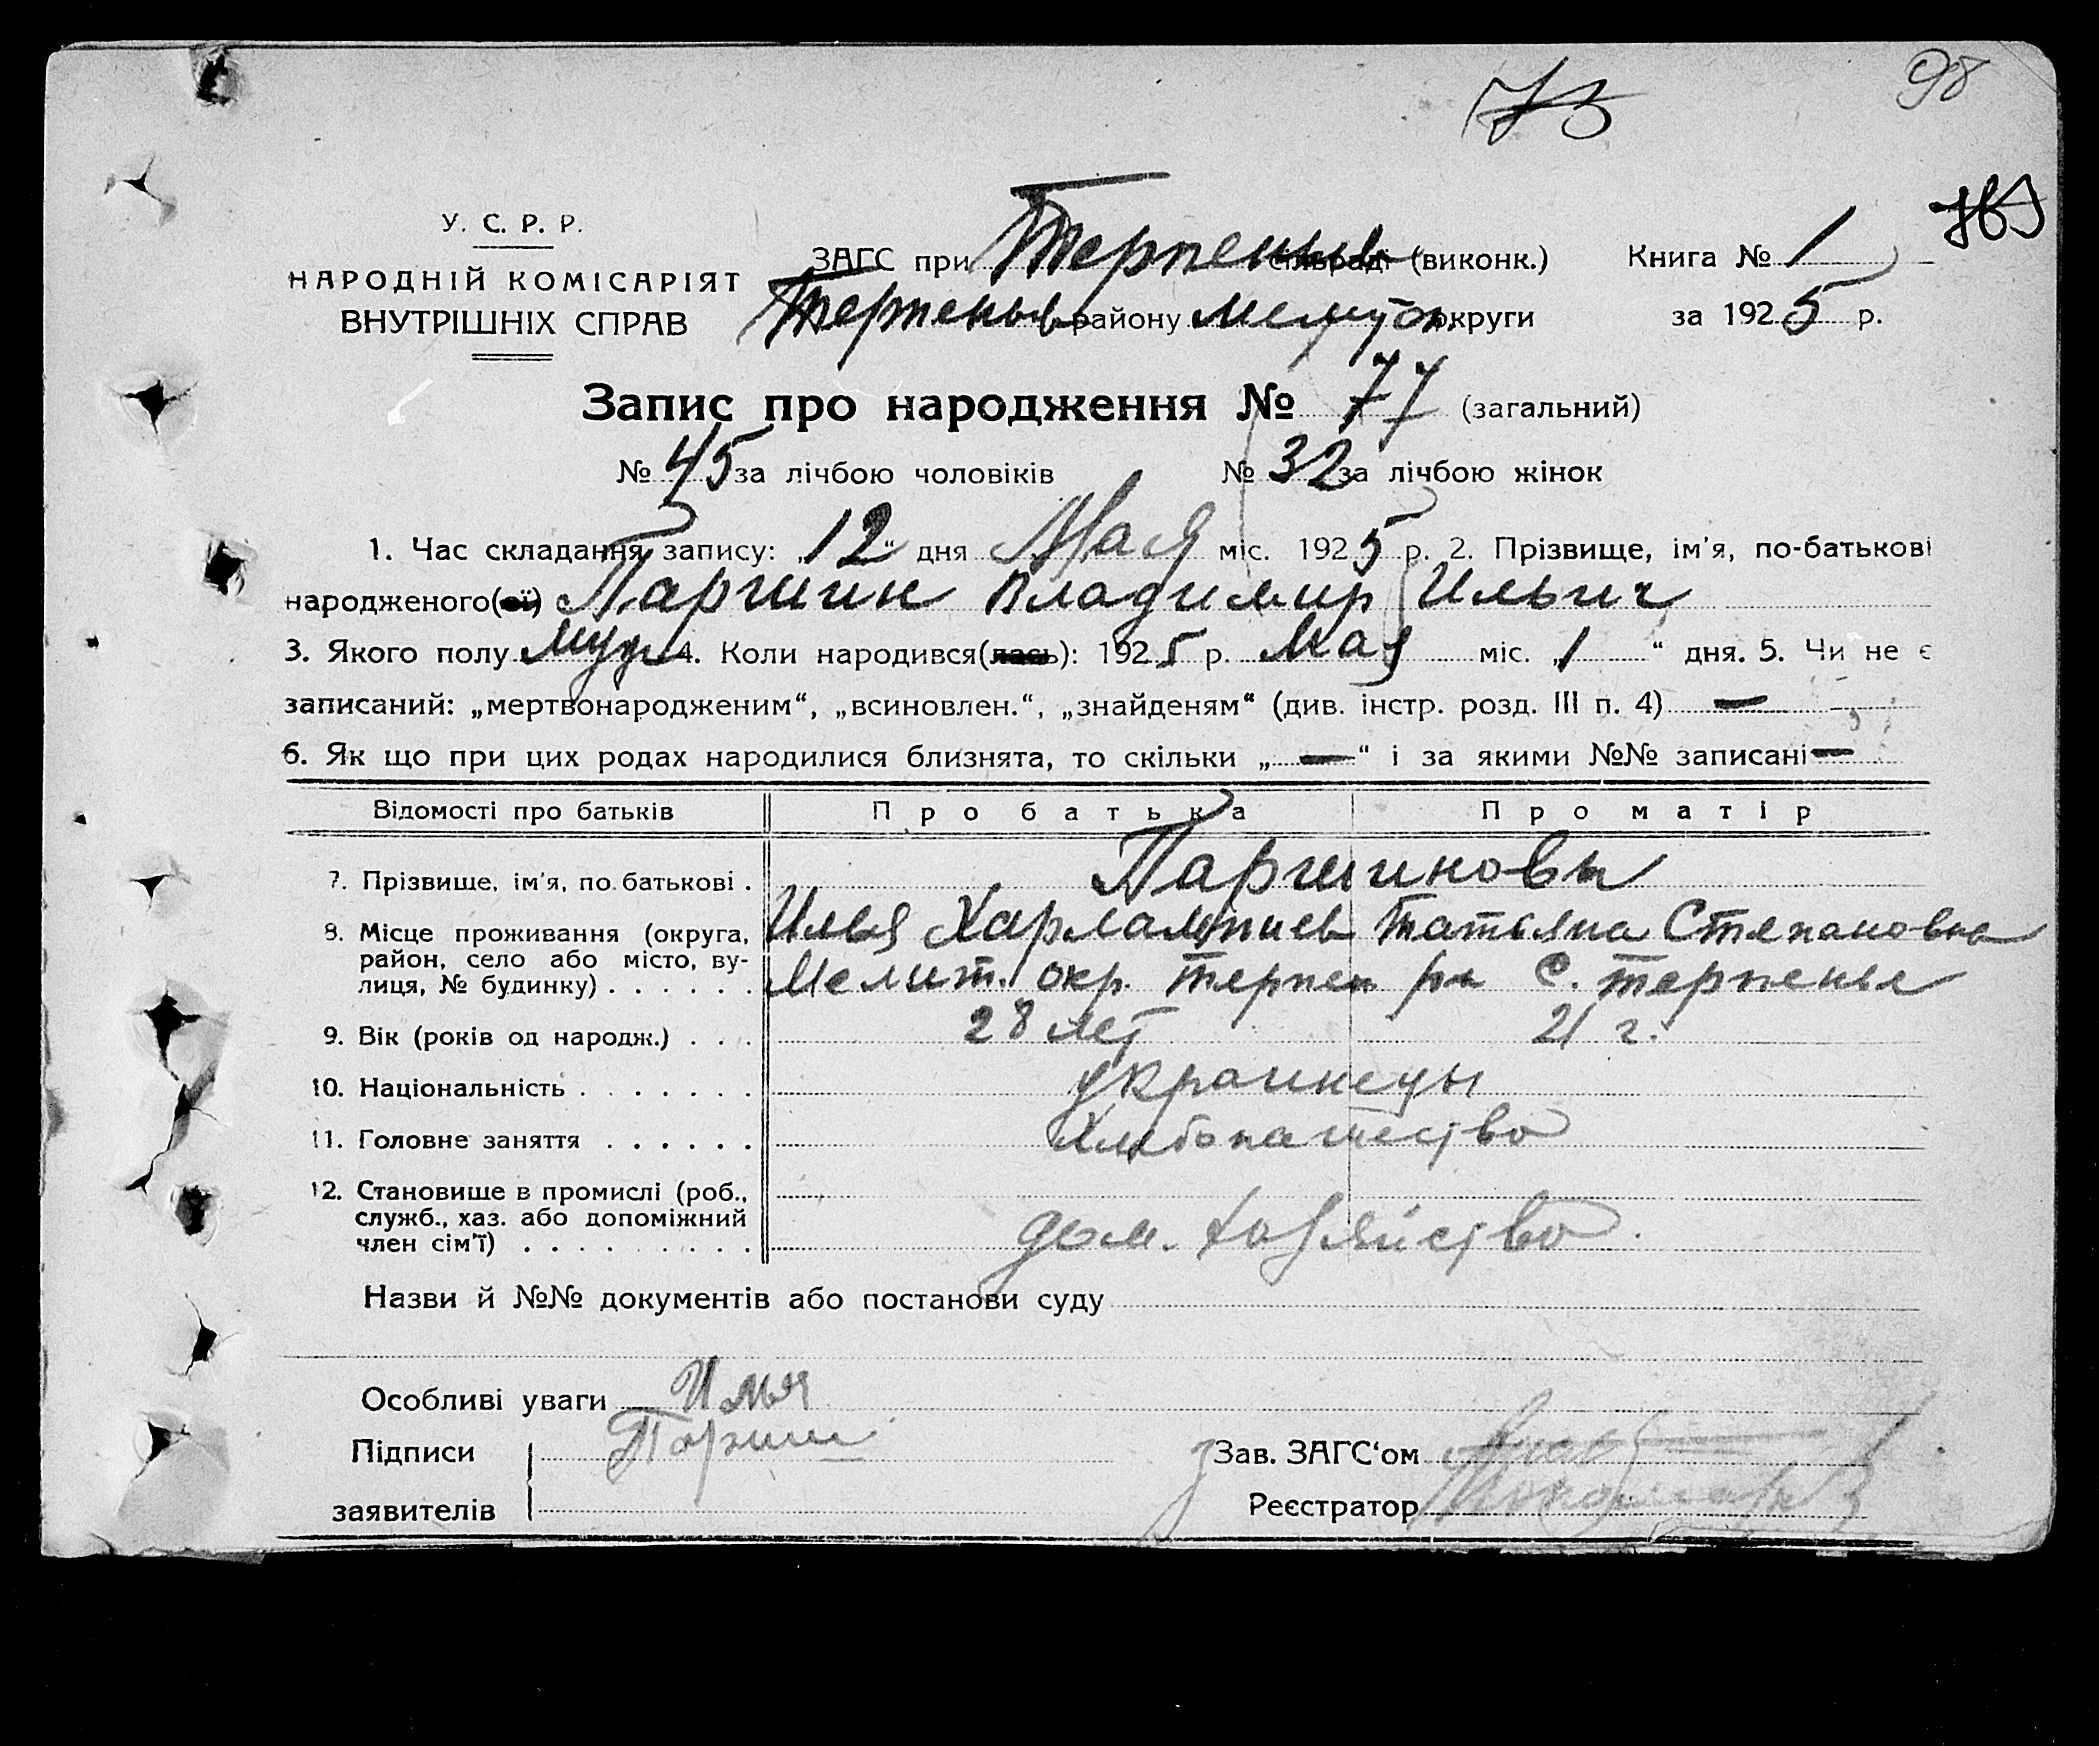 98
73
У. С. Р. Р.
НАРОДНІЙ КОМІСАРІЯТ
ВНУТРІШНІХ СПРАВ
ЗАГС при Терпеньев сільраді (виконк.) Книга № 1
Терпеньев району Мелитоп. округи за 1925 р.
Запис про народження № 77 (загальний)
№ 45 за лічбою чоловіків № 32 за лічбою жінок
1. Час складання запису: „12“ дня Мая міс. 1925 р. 2. Прізвище, ім'я, по-батькові
народженого(ої) Паршин Владимир Ильич
3. Якого полу муж 4. Коли народився(лась): 1925 р. Мая міс. „1“ дня. 5. Чи не є
записаний: „мертвонародженим“, „всиновлен.“, „знайденям“ (див. інстр. розд. III п. 4) —
6. Як що при цих родах народилися близнята, то скільки „—“ і за якими №№ записані —
Відомості про батьків Про батька Про матір
7. Прізвище, ім'я, по батькові . Паршиновы
8. Місце проживання (округа, Илья Харлампиев Татьяна Степановна
район, село або місто, ву-
лиця, № будинку) . . . . . . Мелит. окр. Терпен рн С. Терпенье
9. Вік (років од народж.) . . . 28 лет 21 г.
10. Національність . . . . . . . украинцы
11. Головне заняття . . . . . . Хлебопашество
12. Становище в промислі (роб.,
служб., хаз. або допоміжний
член сім'ї) . . . . . . . . . дом. хозяйство
Назви й №№ документів або постанови суду
Особливі уваги Илья
Підписи Паршин Зав. ЗАГС'ом
заявителів Реєстратор